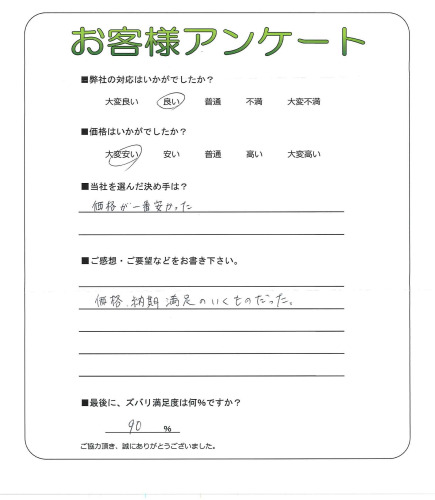 お客様アンケート
■弊社の対応はいかがでしたか？
大変良い 良い 普通 不満 大変不満
■価格はいかがでしたか？
大変安い 安い 普通 高い 大変高い
■当社を選んだ決め手は？
価格が一番安かった
■ご感想・ご要望などをお書き下さい。
価格、納期 満足のいくものだった。
■最後に、ズバリ満足度は何％ですか？
90 ％
ご協力頂き、誠にありがとうございました。